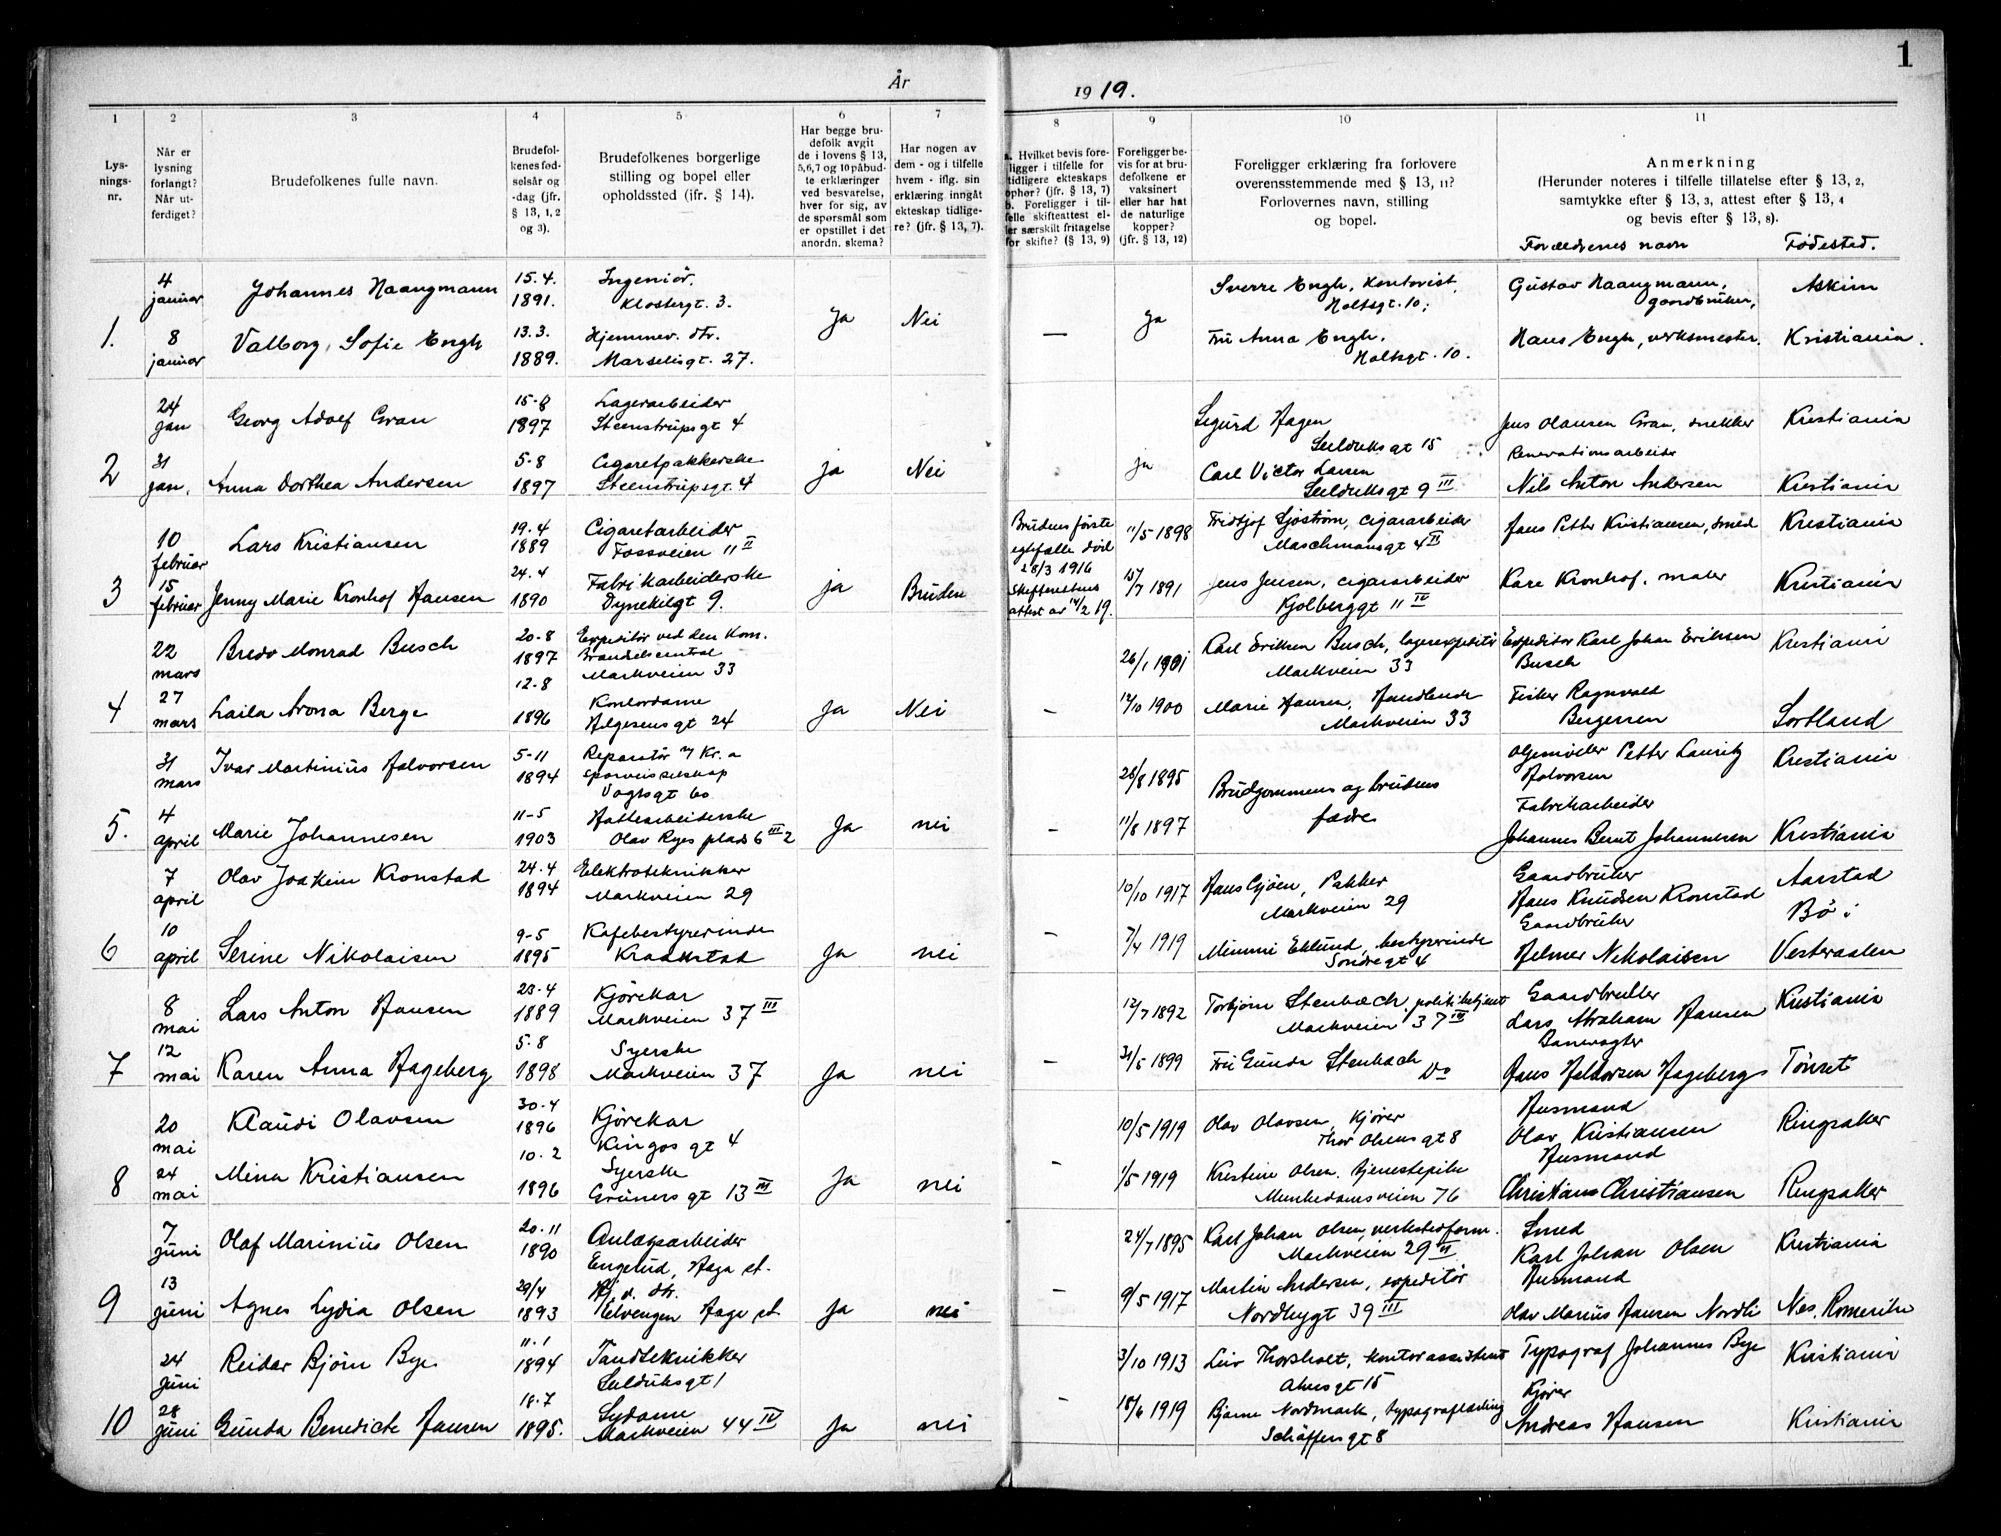 1
År
1919.
1
2
3
4
5
6
7
8
9
10
11
Lys-
nings-
nr.
Når er
lysning
forlangt?
Når ut-
ferdiget?
Brudefolkenes fulle navn.
Brudefol-
kenes fød-
selsår og
-dag (jfr.
§ 13, 1, 2
og 3).
Brudefolkenes borgerlige
stilling og bopel eller
opholdssted (ifr. § 14).
Har begge bru-
defolk avgit
de i lovens § 13,
5,6,7 og 10 påbud-
te erklæringer
ved besvarelse,
hver for sig, av
de spørsmål som
er opstillet i det
anordn. skema?
Har nogen av
dem - og i tilfelle
hvem - iflg. sin
erklæring inngått
ekteskap tidlige-
re? (jfr. § 13, 7).
a. Hvilket bevis fore-
ligger i tilfelle for
tidligere ekteskaps
ophør? (jfr. § 13, 7)
b. Foreligger i til-
felle skifteattest el-
ler særskilt fritagelse
for skifte? (§ 13, 9)
Foreligger be-
vis for at bru-
defolkene er
vaksinert
eller har hat
de naturlige
kopper?
(jfr. § 13, 12)
Foreligger erklæring fra forlovere
overensstemmende med § 13, 11?
Forlovernes navn, stilling
og bopel.
Anmerkning
(Herunder noteres i tilfelle tillatelse efter § 13, 2,
samtykke efter § 13, 3, attest efter § 13, 4
og bevis efter § 13, 8).
Forældrenes navn Fødested.
1.
4
januar
8
januar
Johannes Haangmann
Valborg Sofie Engh
15.4.
1891.
13.3.
1889.
Ingeniør.
Klostergt. 3.
Hjemmev. dtr.
Marselisgt. 27.
Ja
Nei
—
Ja
Sverre Engh, Kontorist,
Holtsgt. 10;
Fru Anna Engh,
Holtsgt. 10.
Gustav Haangmann,
gaardbruker,
Hans Engh, verksmester.
Askim
Kristiania.
2
24
jan
31
jan.
Georg Adolf Gran
Anna Dorthea Andersen
15-8
1897
5-8
1897
Lagerarbeider
Steenstrupsgt 4
Cigaretpakkerske
Steenstrupsgt. 4
ja
Nei
ja
Sigurd Hagen
Seilduksgt 15
Carl Victor Larsen
Seilduksgt 9 III
Jens Olausen Gran, snekker
Renovationsarbeider
Nils Anton Andersen
Kristiania
Kristiania
3
10
februar
15
februar
Lars Kristiansen
Jenny Marie Kronhof Hansen
19-4
1889
24.4
1890
Cigaretarbeider
Fossveien 11 II
Fabrikarbeiderske
Dynekilgt 9.
ja
Bruden
Brudens første
egtefælle død
28/3 1916
Skifterettens
attest av 14/2 19.
11/5 1898
15/7 1891
Fridtjof Sjøstrøm, cigararbeider
Maschmansgt 4 II
Jens Jensen, cigararbeider
Kjølberggt 11 IV
Hans Petter Kristiansen, smed
Kare Kronhof. maler
Kristiania
Kristiania
4
22
mars
27
mars
Bredo Monrad Busch
Laila Arona Berge
20-8
1897
12-8
1896
Expeditør ved den Kom.
Brændselscentral
Markveien 33
Kontordame
Helgesensgt 24
Ja
Nei
—
26/1 1901
12/10 1900
Karl Eriksen Busch, lagerexpeditør
Markveien 33
Marie Hansen, Handlende
Markveien 33
Expeditør Karl Johan Eriksen
Busch
Fisker Ragnvald
Bergersen
Kristiania
Sortland
5.
31
mars
4
april
Ivar Martinius Halvorsen
Marie Johannesen
5-11
1894
11-5
1903
Reparatør v/ Kr.a
Sporveisselskap
Vogtsgt 60
Hattearbeiderske
Olav Ryes plads 6 III 2
Ja
nei
—
28/8 1895
11/8 1897
Brudgommens og brudens
fædre
Petter Lauritz
Halvorsen
Fabrikarbeider
Johannes Bernt Johannesen
Kristiania
Kristiania
6
7
april
10
april
Olav Joakim Kronstad
Serine Nikolaisen
24.4
1894
9-5
1895
Elektrotekniker
Markveien 29
Kafebestyrerinde
Kraakstad
Ja
nei
—
10/10 1917
7/4 1919
Hans Gjøen, Pakker
Markveien 29
Mimmi Eklund, bestyrerinde
Søndregt 4
Gaardbruker
Hans Knudsen Kronstad
Gaardbruker
Helmer Nikolaisen
Aarstad
Bø i
Vesteraalen
7
8
mai
12
mai
Lars Anton Hansen
Karen Anna Hageberg
23-4
1889
5.8
1898
Kjørekar
Markveien 37 III
Syerske
Markveien 37
Ja
nei
—
12/7 1892
31/5 1899
Torbjørn Stenbæch, politibetjent
Markveien 37 III
Fru Gunda Stenbæch
Do
Gaardbruker
Lars Abraham Hansen
Banevogter
Hans Haldorsen Hageberg
Kristiania
Tönset
8
20
mai
24
mai
Klaudi Olavsen
Mina Kristiansen
30-4
1896
10-2
1896
Kjørekar
Kingos gt 4
Syerske
Grüners gt 13 III
Ja
nei
—
10/5 1919
1/5 1919
Olav Olavsen, Kjører
Thor Olsens gt 8
Kristine Olsen. tjenestepike
Munkedamsveien 76
Husmand
Olav Kristiansen
Husmand
Christians Christiansen
Ringsaker
Ringsaker
9
7
juni
13
juni
Olaf Marinius Olsen
Agnes Lydia Olsen
20-11
1890
29/4
1893
Anlægsarbeider
Engelud, Haga st.
Hj. v. dtr.
Elvengen Haga st.
Ja
nei
—
24/7 1895
9/5 1917
Karl Johan Olsen, verkstedform.
Markveien 29 II
Martin Andersen, expeditør
Nordbygt 39 III
Smed
Karl Johan Olsen
Husmand
Olav Marius Hansen Nordli
Kristiania
Nes, Romerike
10
24
juni
28
juni
Reidar Bjørn Bye
Gunda Benedicte Hansen
11-1
1894
18-7
1895.
Tandtekniker
Seilduksgt 1
Sydame
Markveien 44 IV
Ja
nei
—
3/10 1913
18/6 1919
Leiv Thorsholt, kontorassistent
Ahusgt 15
Bjarne Nordmark, typograflærling
Schäffersgt 8
Typograf Johannes Bye
Kjører
Andreas Hansen
Kristiania
Kristiania